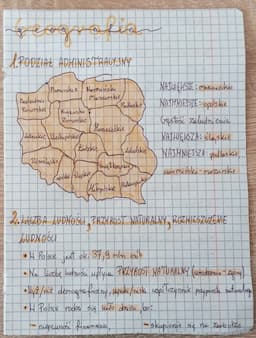 geografia
1. PODZIAŁ ADMINISTRACYJNY
Pomorskie
Warmińsko
Mazurskie
Zachodnio
Pomorskie
Podlaskie
Kujawsko
Pomorskie
Mazowieckie
Lubuskie
Wielkopolskie
Łódzkie
Lubelskie
Dolnośląskie
Opolskie
Śląskie
Świętokrzyskie
Małopolskie
NAJWIĘKSZE: mazowieckie
NAJMNIEJSZE: opolskie
Gęstość zaludnienia
NAJWIĘKSZA: śląskie
NAJMNIEJSZA: podlaskie,
warmińsko-mazurskie
2. LICZBA LUDNOŚCI, PRZYROST NATURALNY, ROZMIESZCZENIE
LUDNOŚCI
• W Polsce jest ok. 37,9 mln osób
• Na liczbę ludności wpływa PRZYROST NATURALNY (urodzenia - zgony)
• Wyż/niż demograficzny, współczynnik przyrostu naturalnego
• W Polsce rodzi się mało dzieci, bo:
- niepewność finansowa,
- skupienie się na zawodzie